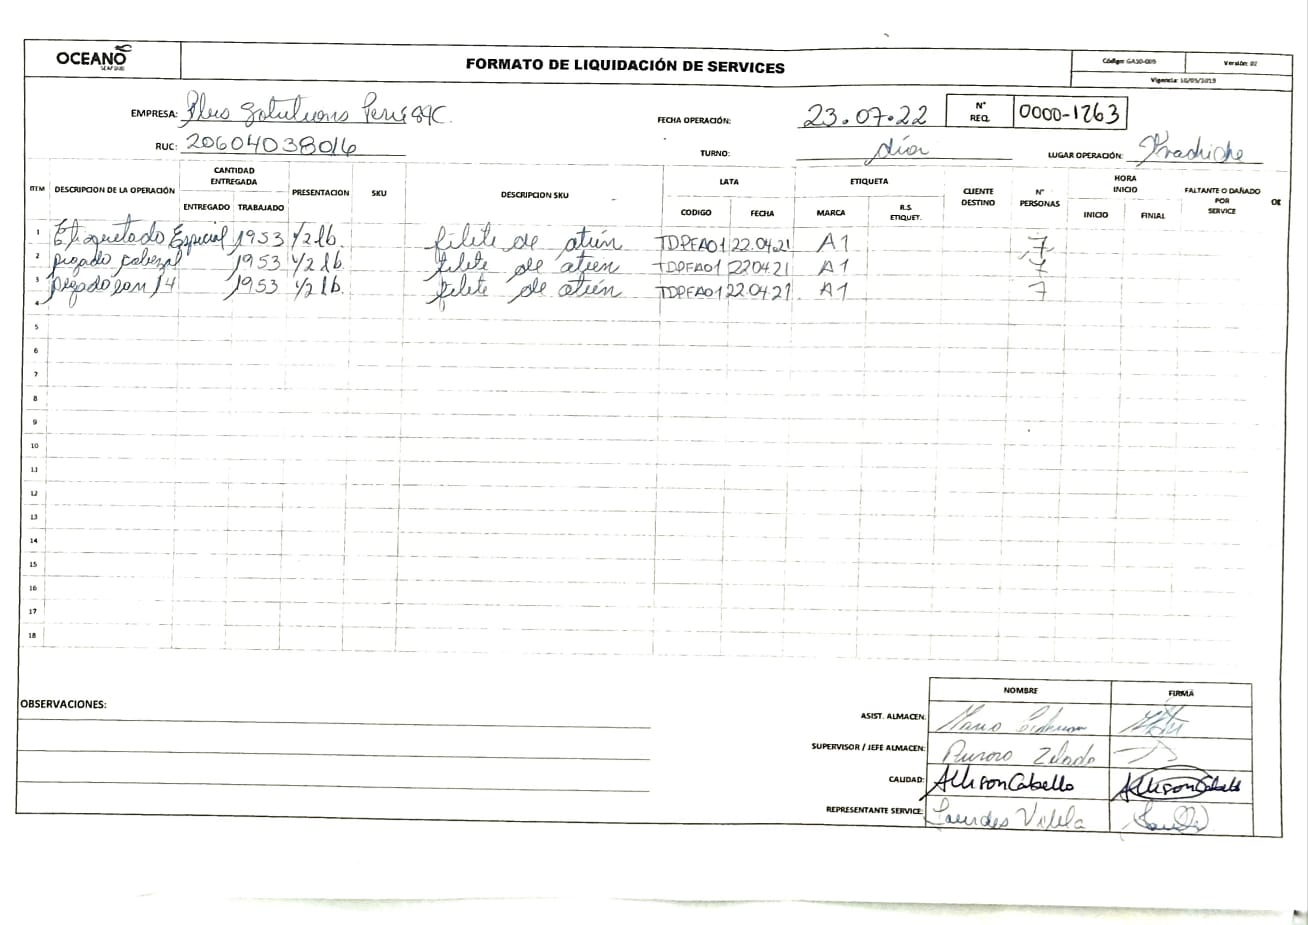 OCEANO
SEAFOOD
FORMATO DE LIQUIDACIÓN DE SERVICES
Código: GA10-005
Versión: 02
Vigencia: 10/05/2019
EMPRESA: Plus Solutions Perú SAC.
FECHA OPERACIÓN: 23.07.22
N° REQ. 0000-1263
RUC: 20604038016
TURNO: día
LUGAR OPERACIÓN: Prachiche
ITEM DESCRIPCION DE LA OPERACIÓN CANTIDAD ENTREGADA ENTREGADO TRABAJADO PRESENTACION SKU DESCRIPCION SKU LATA CODIGO FECHA ETIQUETA MARCA R.S. ETIQUET. CLIENTE DESTINO N° PERSONAS HORA INICIO INICIO FINIAL FALTANTE O DAÑADO POR SERVICE
1 Etiquetado Especial 1953 1/2 lb. filete de atún TDPFA01 22.04.21 A1 7
2 pegado cabezal 1953 1/2 lb filete de atún TDPFA01 220421 A1 7
3 pegado 1953 1/2 lb. filete de atún TDPFA01 22.04.21. A1 7
4
5
6
7
8
9
10
11
12
13
14
15
16
17
18
OBSERVACIONES:
NOMBRE FIRMA
ASIST. ALMACEN:
SUPERVISOR / JEFE ALMACEN:
CAUDAD: Allison Cabello Allison Cabello
REPRESENTANTE SERVICE: Lourdes Vilela